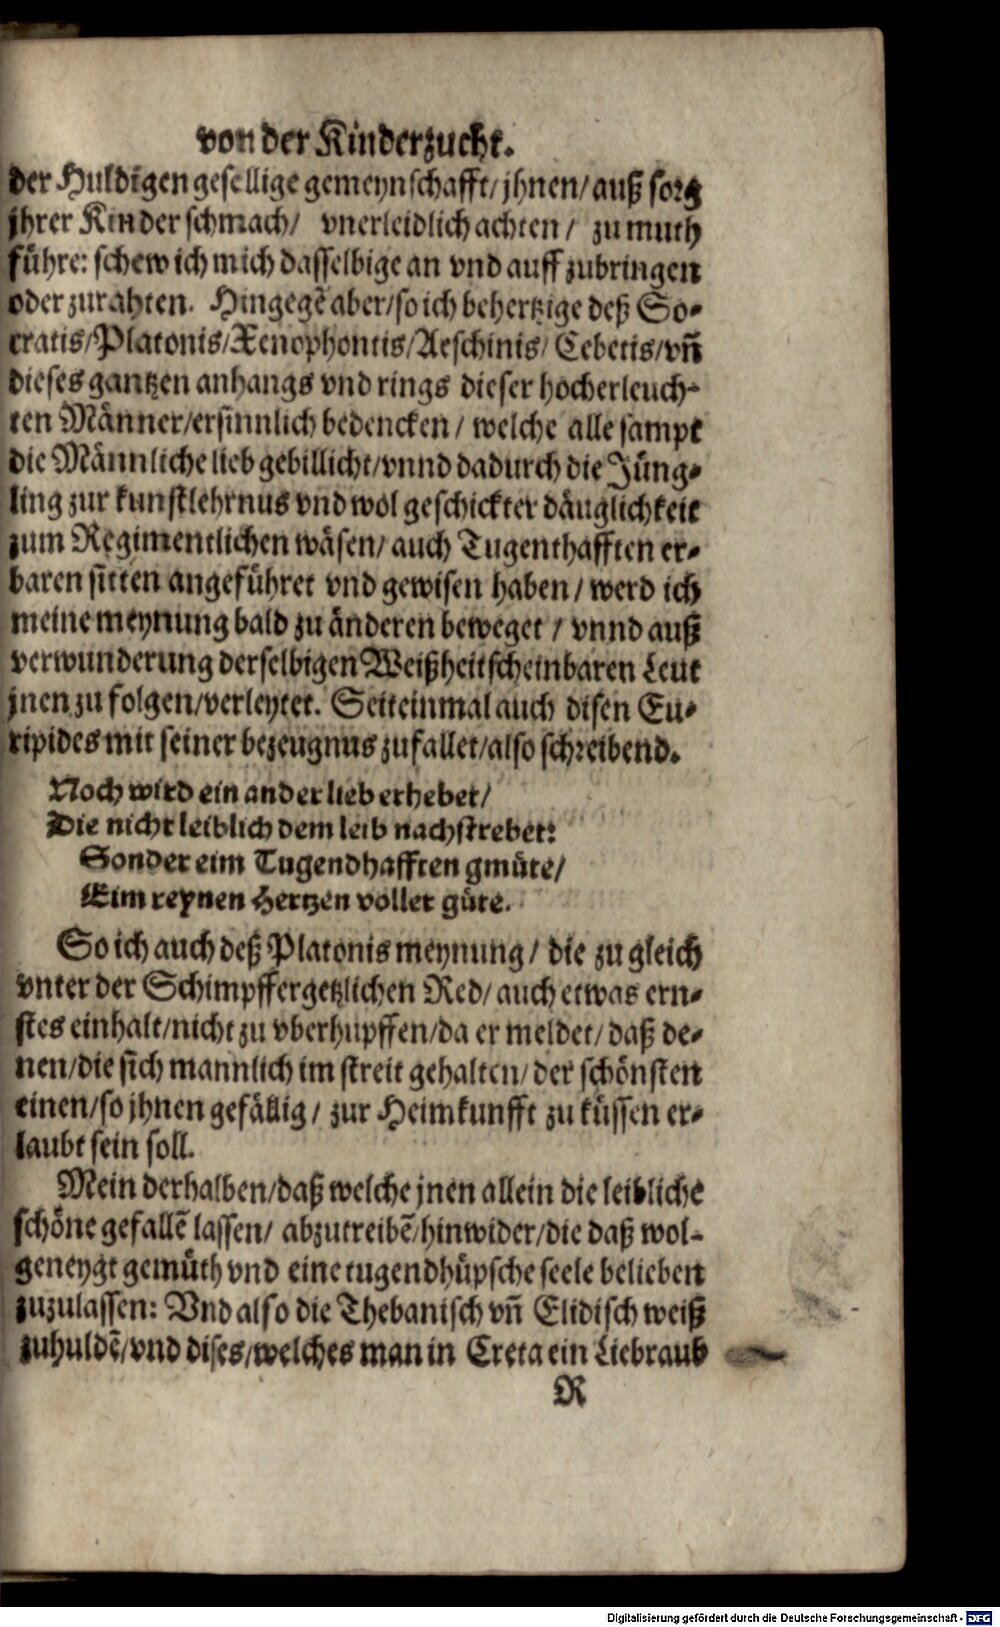 von der Kinderzucht.
der Huldigen gesellige gemeynschafft/ jhnen/ auß sorg
jhrer Kinder schmach/ vnerleidlich achten/ zu muth
führe: schew ich mich dasselbige an vnd auff zubringen
oder zurahten. Hingegẽ aber/ so ich behertzige deß So-
cratis/ Platonis/ Xenophontis/ Aeschinis/ Cebetis/ vñ
dieses gantzen anhangs vnd rings dieser hocherleuch-
ten Männer/ ersinnlich bedencken/ welche alle sampt
die Männliche lieb gebillicht/ vnnd dadurch die Jüng-
ling zur kunstlehrnus vnd wol geschickter däuglichkeit
zum Regimentlichen wäsen/ auch Tugenthafften er-
baren sitten angeführet vnd gewisen haben/ werd ich
meine meynung bald zu änderen beweget/ vnnd auß
verwunderung derselbigen Weißheitscheinbaren Leut
jnen zu folgen/ verleytet. Seiteinmal auch disen Eu-
ripides mit seiner bezeugnus zufallet/ also schreibend.
Noch wird ein ander lieb erhebet/
Die nicht leiblich dem leib nachstrebet:
Sonder eim Tugendhafften gmüte/
Eim reynen Hertzen voller güte.
So ich auch deß Platonis meynung/ die zu gleich
vnter der Schimpffergetzlichen Red/ auch etwas ern-
stes einhalt/ nicht zu vberhupffen/ da er meldet/ daß de-
nen/ die sich mannlich im streit gehalten/ der schönsten
einen/ so jhnen gefällig/ zur Heimkunfft zu küssen er-
laubt sein soll.
Mein derhalben/ daß welche jnen allein die leibliche
schöne gefallẽ lassen/ abzutreibẽ/ hinwider/ die daß wol-
geneygt gemüth vnd eine tugendhüpsche seele belieben
zuzulassen: Vnd also die Thebanisch vñ Elidisch weiß
zuhuldẽ/ vnd dises/ welches man in Creta ein Liebraub
R
Digitalisierung gefördert durch die Deutsche Forschungsgemeinschaft - DFG